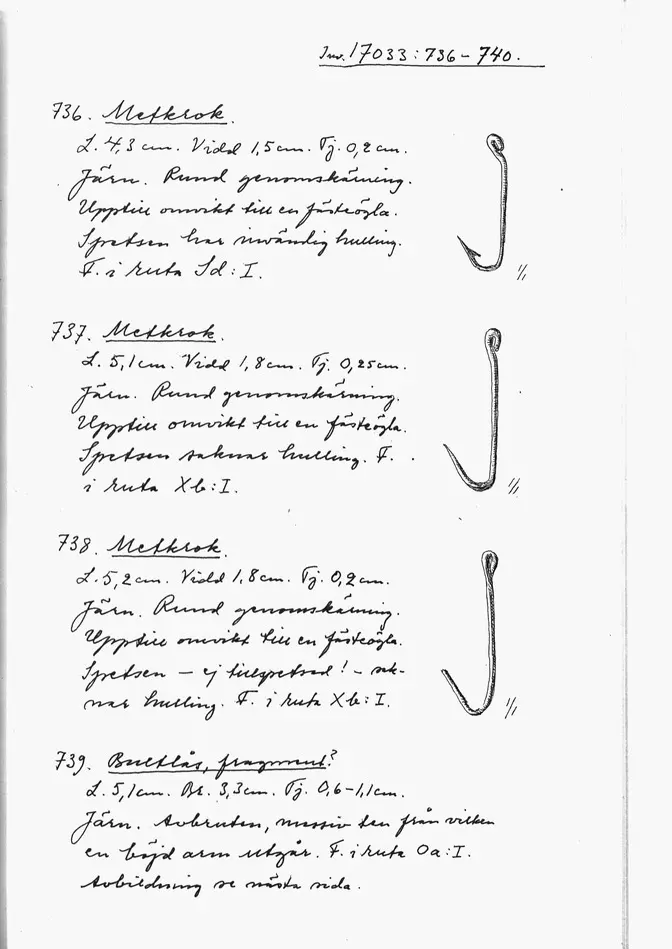 Inv. 17033:736-740.
736. Metkrok.
L. 4,3 cm. Vidd 1,5 cm. Tj. 0,2 cm.
Järn. Rund genomskärning.
Upptill omvikt till en fästeögla.
Spetsen har invändig hulling.
F. i ruta Sd:I.
1/1
737. Metkrok.
L. 5,1 cm. Vidd 1,8 cm. Tj. 0,25 cm.
Järn. Rund genomskärning.
Upptill omvikt till en fästeögla.
Spetsen saknar hulling. F.
i ruta Xb:I.
1/1
738. Metkrok.
L. 5,2 cm. Vidd 1,8 cm. Tj. 0,2 cm.
Järn. Rund genomskärning.
Upptill omvikt till en fästeögla.
Spetsen – ej tillspetsad! – sak-
nar hulling. F. i ruta Xb:I.
1/1
739. Bultlås, fragment?
L. 5,1 cm. Br. 3,3 cm. Tj. 0,6-1,1 cm.
Järn. Avbruten, massiv ten från vilken
en böjd arm utgår. F. i ruta Oa:I.
Avbildning se nästa sida.